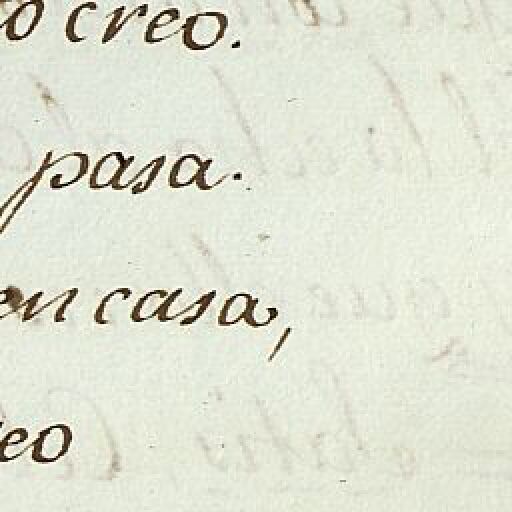 o creo.
pasa.
en casa,
eo